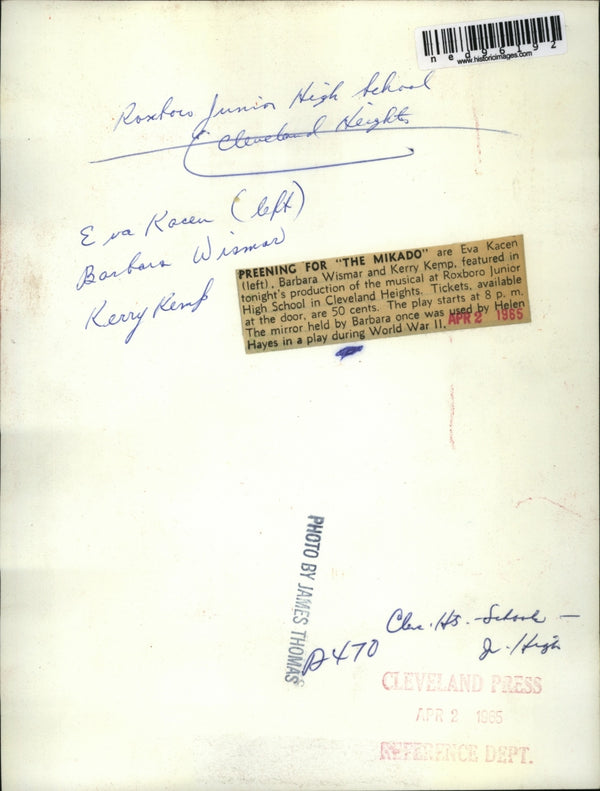 ned96192
www.historicimages.com
Roxboro Junior High School
Cleveland Heights
Eva Kacen (left)
Barbara Wismar
Kerry Kemp
PREENING FOR "THE MIKADO" are Eva Kacen
(left), Barbara Wismar and Kerry Kemp, featured in
tonight's production of the musical at Roxboro Junior
High School in Cleveland Heights. Tickets, available
at the door, are 50 cents. The play starts at 8 p. m.
The mirror held by Barbara once was used by Helen
Hayes in a play during World War II. APR 2 1965
PHOTO BY JAMES THOMAS
A470
Cleve. Hts. - Schools -
Jr. High
CLEVELAND PRESS
APR 2 1965
REFERENCE DEPT.